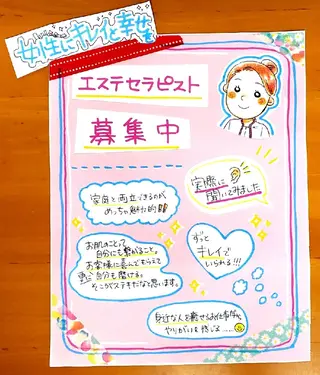 女性にキレイと幸せを
エステセラピスト
募集中
実際に
聞いてみました
家庭と両立できるのが
めっちゃ魅力的!!!
ずっと
キレイで
いられる!!!
お肌のことって
自分にも繋がること。
お客様に喜んでもらえて
自分も磨ける。
そこがステキだなと思います。
身近な人を癒せるお仕事で
やりがいを感じる……